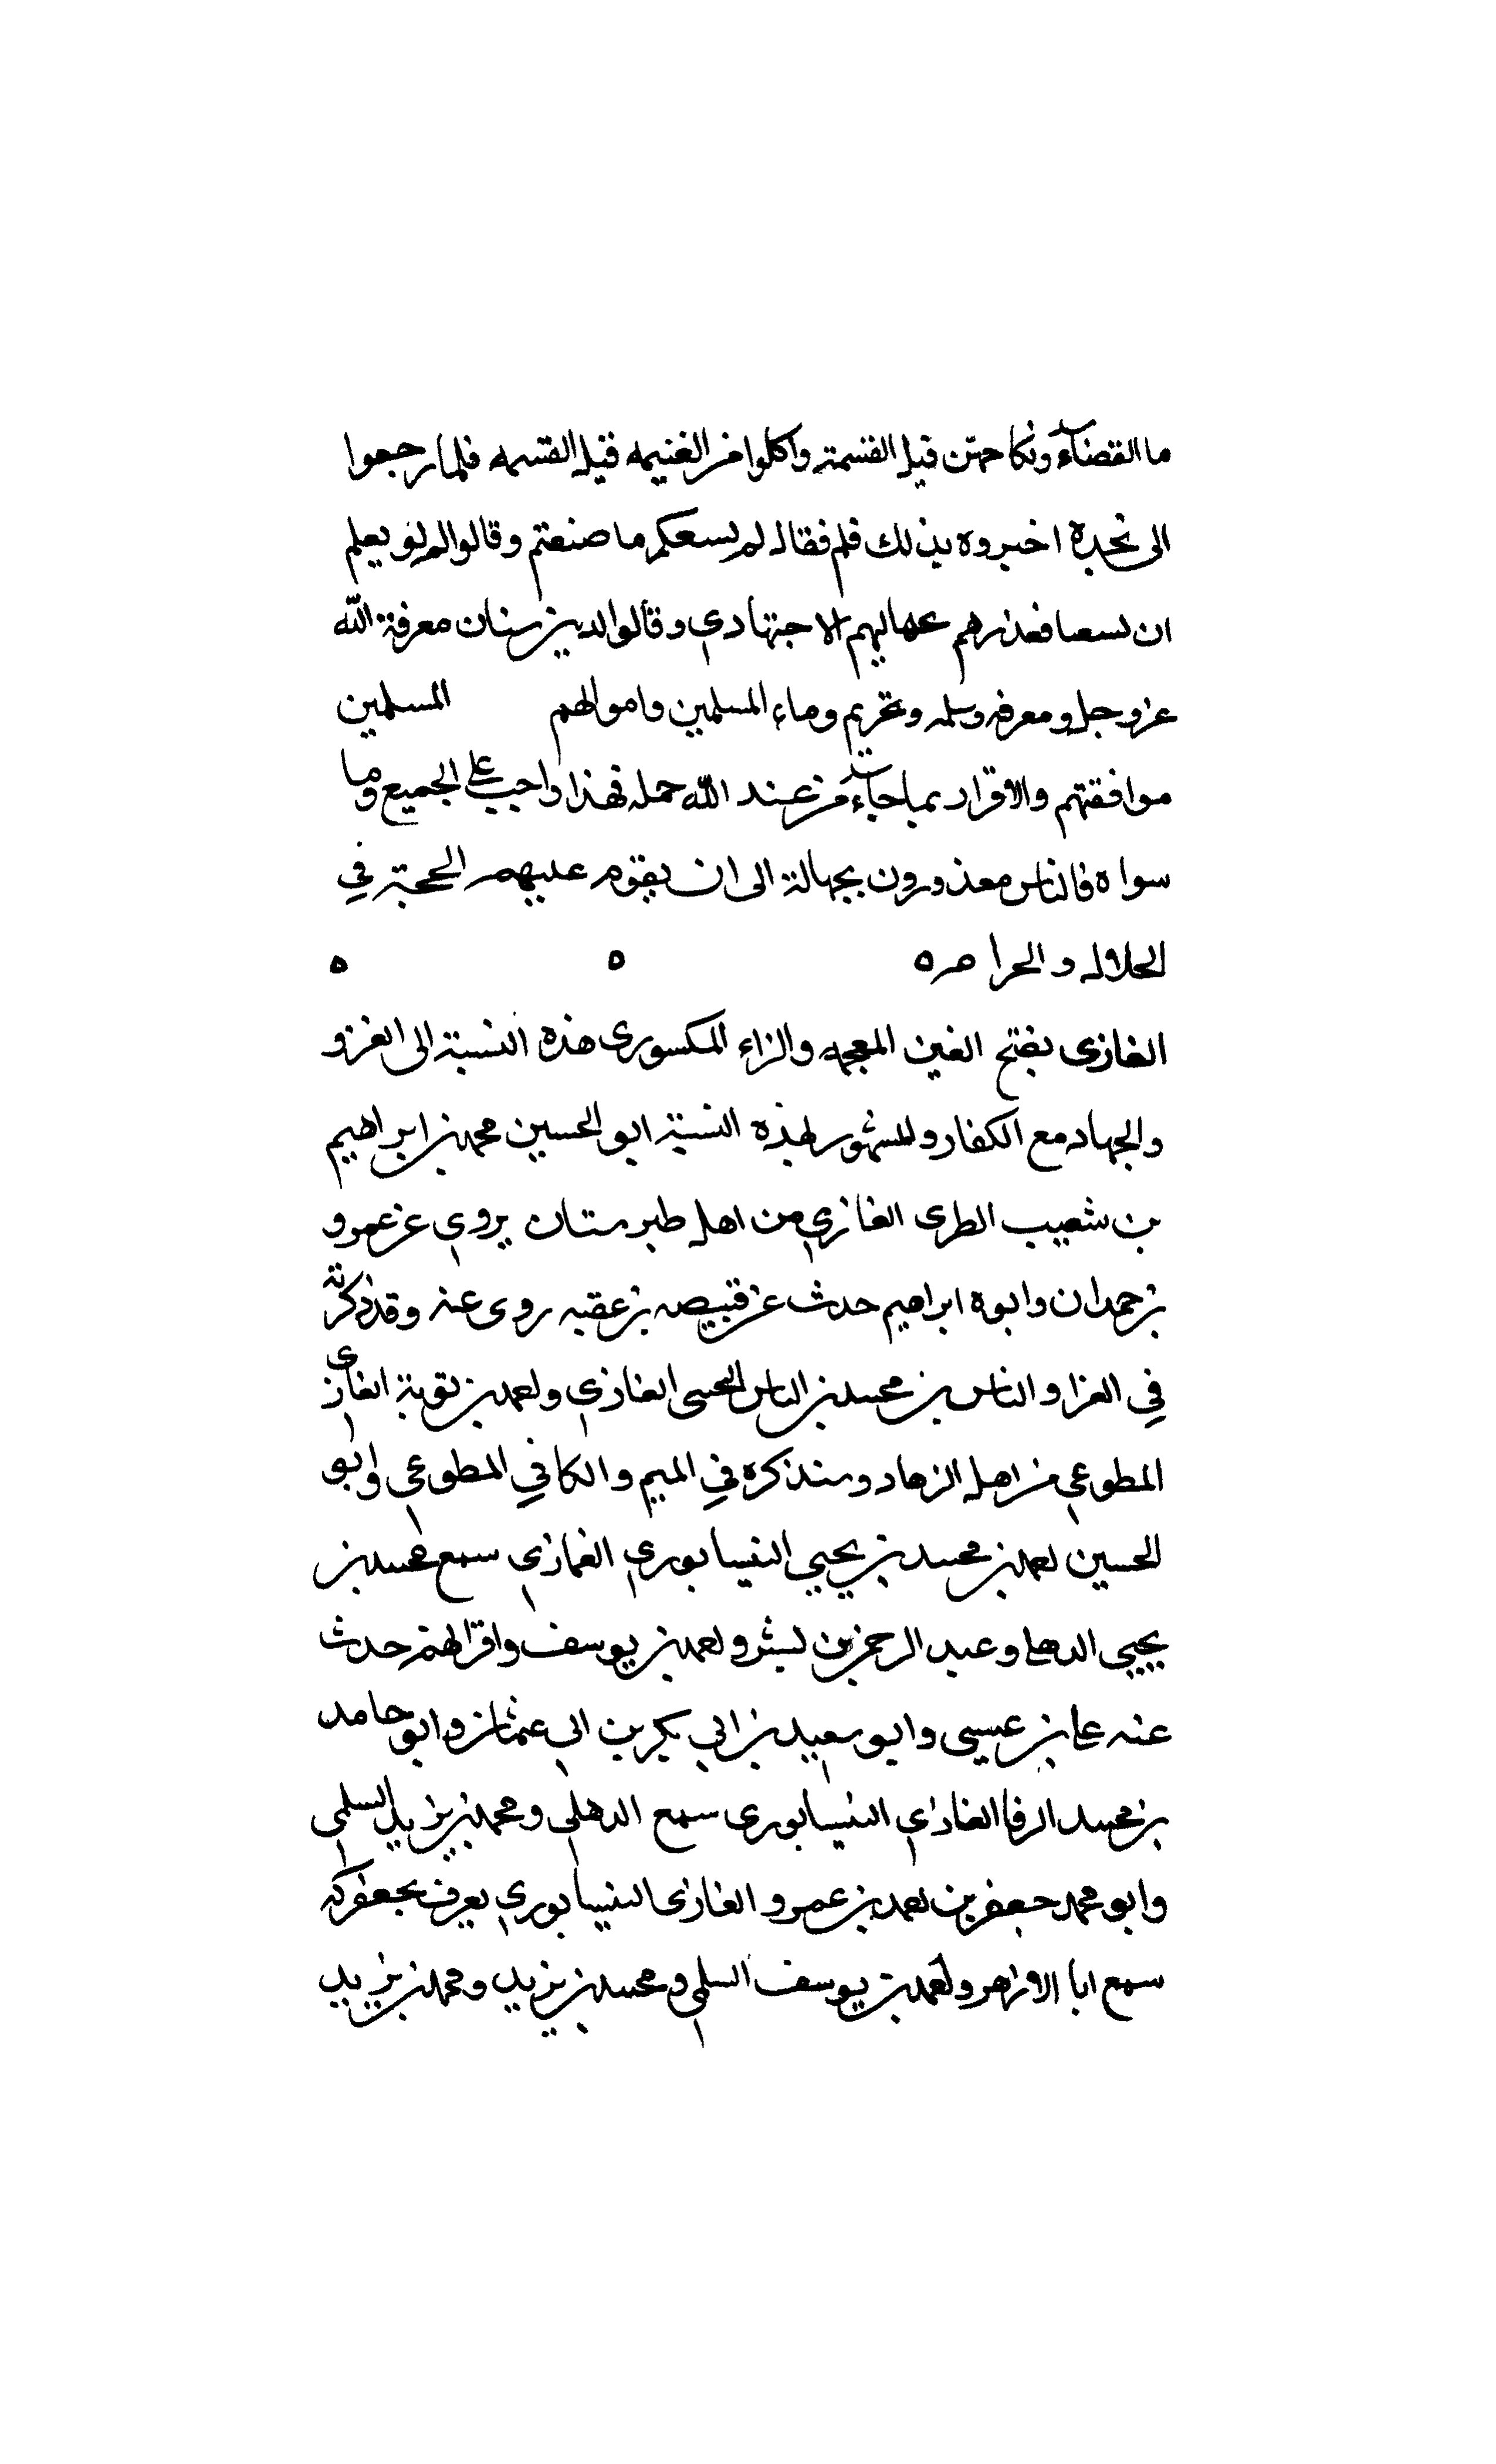 ما القضاء ونكاحهن قبل القسمة واكلوا من الغنيمه قبل القسمه فلما رجعوا
الى نجدة اخبروه بذلك فلم فقال لم يسعكم ما صنعتم وقالوا لم يعلم
ان لسعا فعذرهم بجهالتهم الاجتهادي وقالوا الدين معرفة الله
عز وجل ومعرفه رسله وتحريم دماء المسلمين واموالهم المسلمين
موافقتهم والاقرار بما جاء من عند الله حمله فهذا واجب على الجميع وما
سواه فالناس معذورون بجهالة الى ان يقوم عليهم الحجة في
الحلال والحرام ٥ ٥ ٥
الغازى بفتح الغين المعجمه والزاء المكسورى هذه النسبة الى الغزو
والجهاد مع الكفار والمشهور بهذه النسبة ابو الحسين محمد بن ابراهيم
بن شعيب الطبرى الغازي من اهل طبرستان يروي عن عمرو
بن حمدان وابوه ابراهيم حدث عن قبيصه بن عقبه روى عنه وقد ذكرته
في الغزا والناس بن محمد بن الناس الغازي واحمد بن توبة الغازى
المطوعي من اهل الزهاد وسنذكره في الميم والكافي المطوعي وابو
الحسين احمد بن محمد بن يحيي النيسابوري الغازي سمع محمد بن
يحيي الدهلي وعبد الرحمن بن بشر واحمد بن يوسف واقرانهم حدث
عنه علي بن عيسي وابو سعيد بن ابي بكر بن ابي عثمان وابو حامد
بن محمد الرفا الغازي النيسابورى سمع الدهلي ومحمد بن يزيد السلمي
وابو محمد جعفر بن احمد بن عمرو الغازى النيسابوري يعرف بجعفركه
سمع ابا الازهر واحمد بن يوسف السلمي ومحمد بن يزيد ومحمد بن يزيد